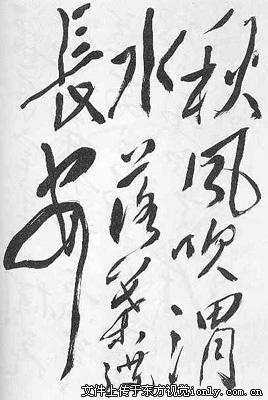 秋風吹渭
水落葉滿
長安
文件上传于东方视觉ionly.com.cn